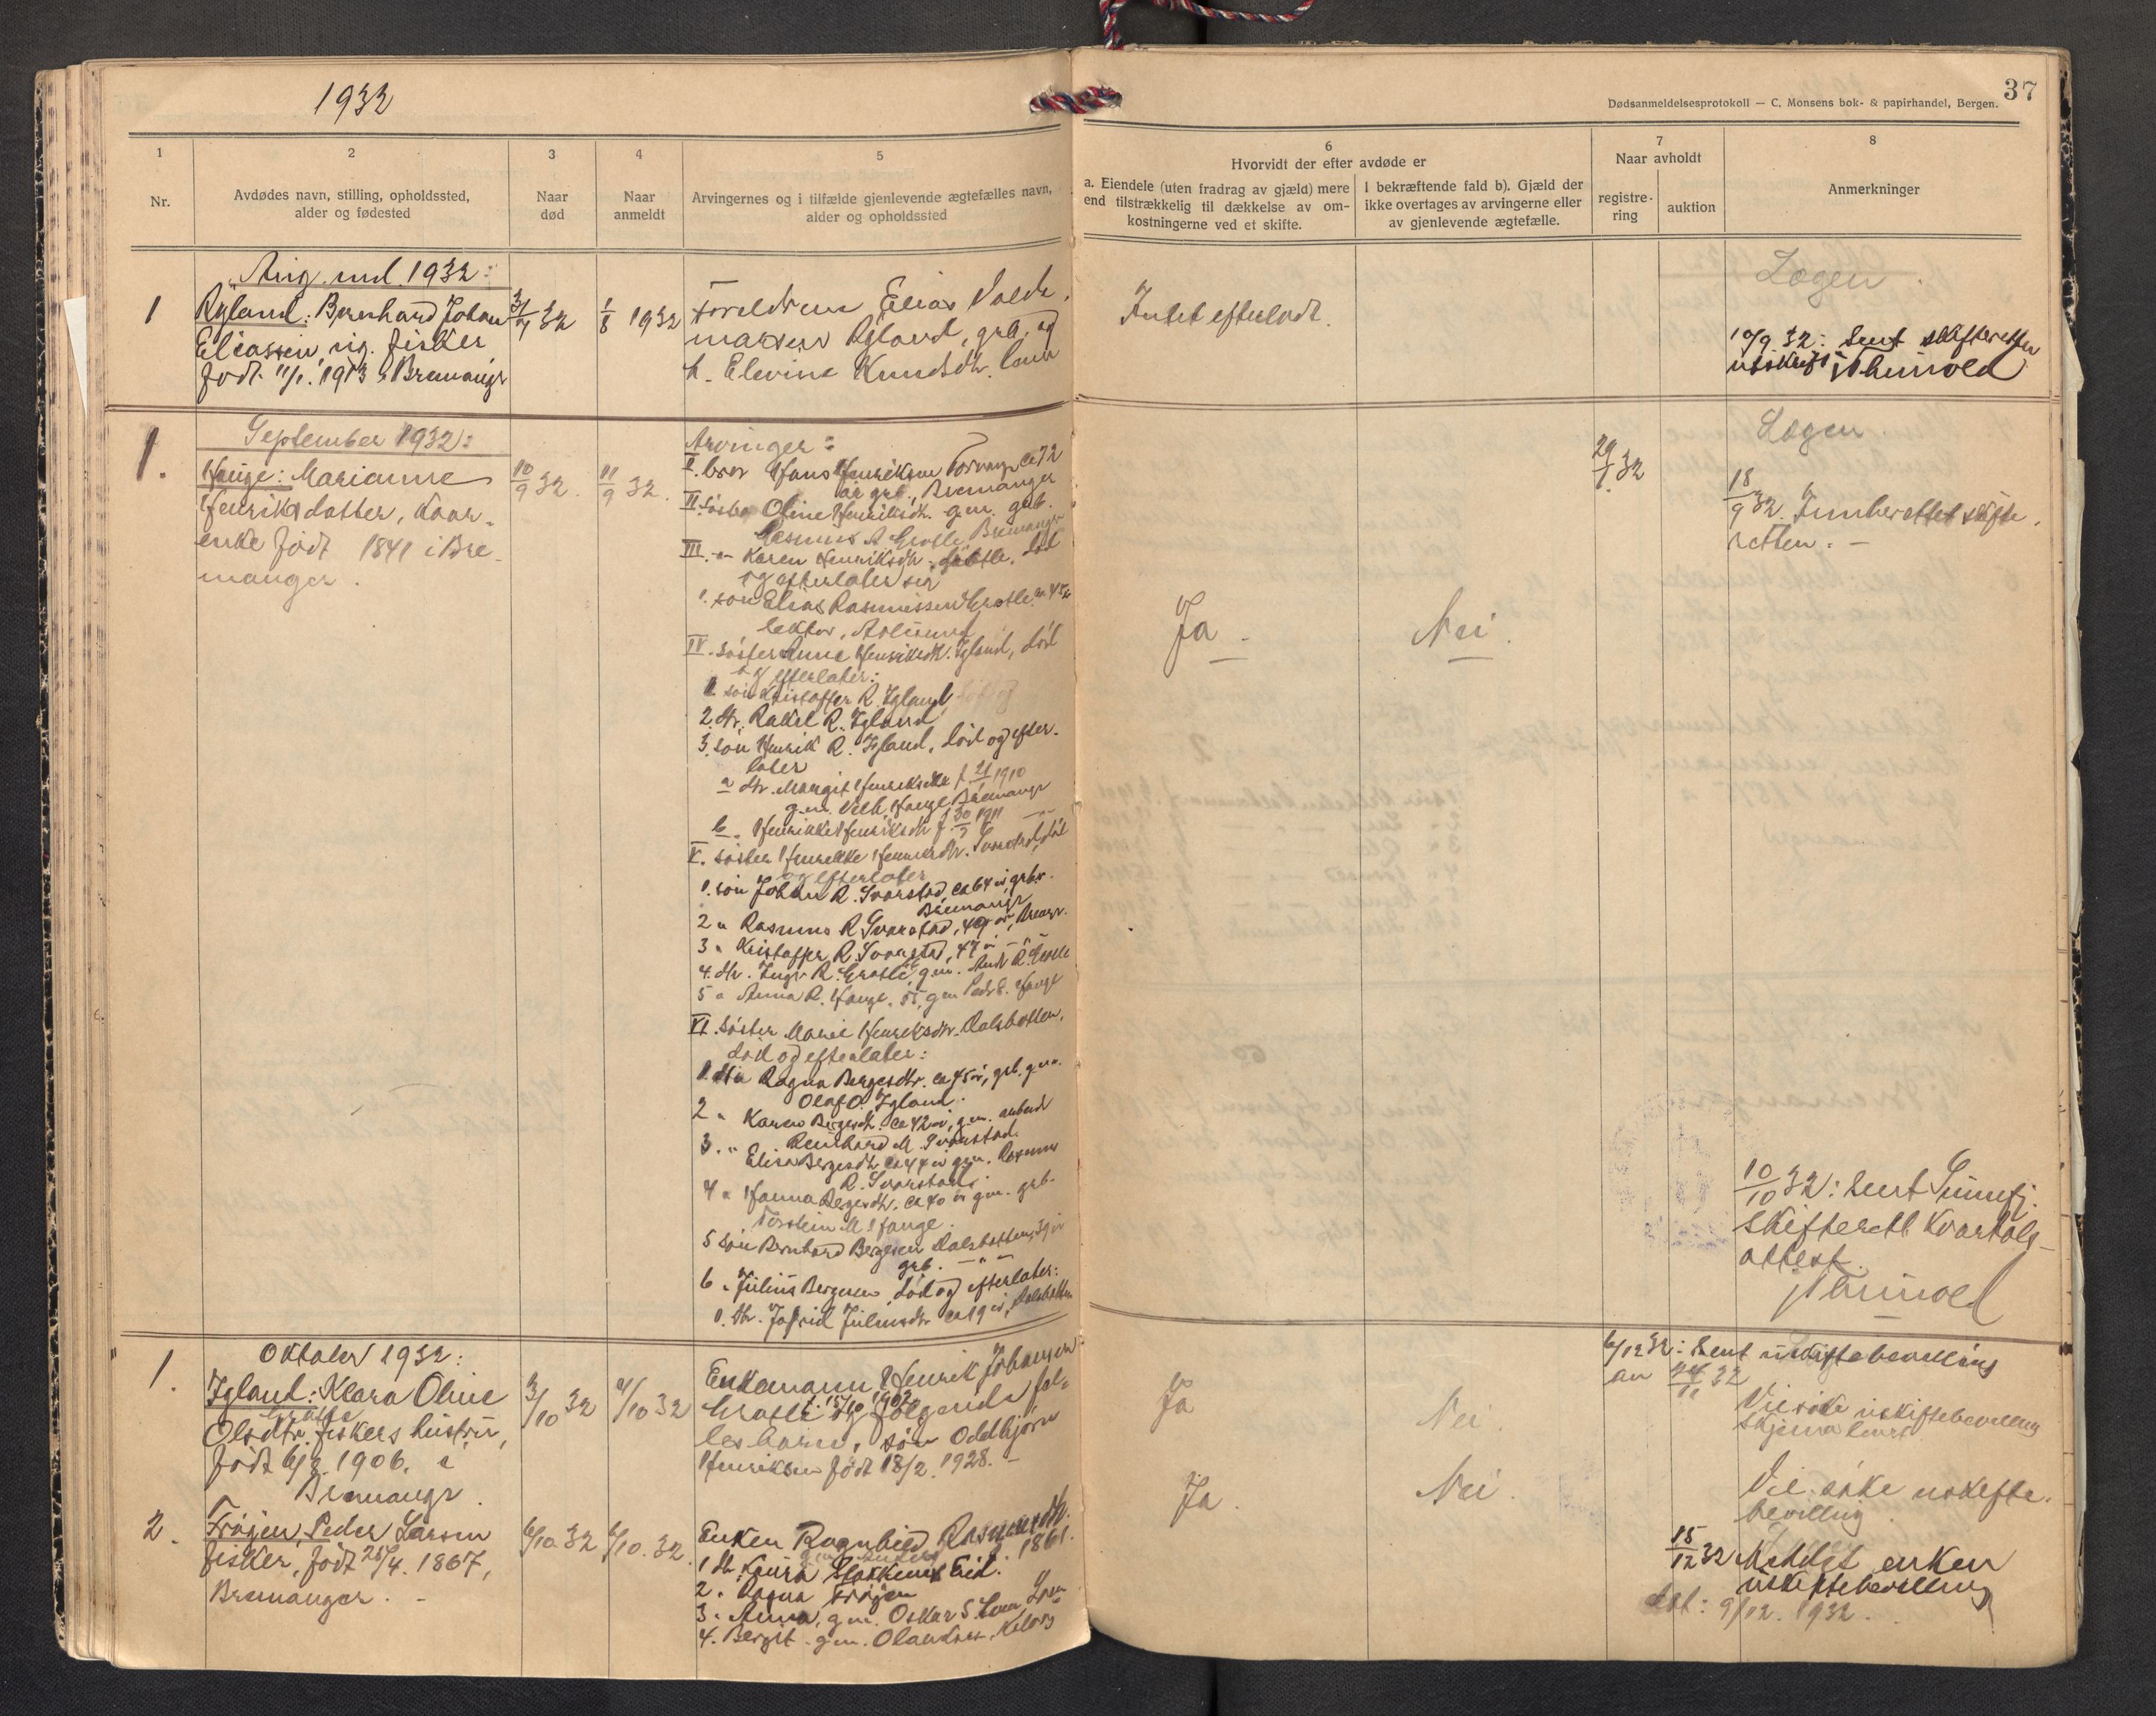 1932
37
Dødsanmeldelsesprotokoll — C. Monsens bok- & papirhandel, Bergen.
1
2
3
4
5
6
7
8
Nr.
Avdødes navn, stilling, opholdssted,
alder og fødested
Naar
død
Naar
anmeldt
Arvingernes og i tilfælde gjenlevende ægtefælles navn,
alder og opholdssted
Hvorvidt der efter avdøde er
a. Eiendele (uten fradrag av gjæld) mere
end tilstrækkelig til dækkelse av om-
kostningerne ved et skifte.
I bekræftende fald b). Gjæld der
ikke overtages av arvingerne eller
av gjenlevende ægtefælle.
Naar avholdt
registre-
ring
auktion
Anmerkninger
Aug. md. 1932:
1
Ryland: Bernhard Johan
Eliassen, ug. fisker
født 11/1. 1913 i Bremanger
32
1/8 1932
Foreldrene Elias Valde-
marsen Ryland, grb. og
h. Elevine Knudsdtr.
Intet efterladt.
Lægen.
10/9 32: Sent skifteretten
utskrift
September 1932:
1.
Hauge: Marianne
Henriksdatter, kaar-
enke født 1841 i Bre-
manger.
10/9 32.
11/9 32.
Arvinger:
I. bror Hans Henriksen ca 72
år grb., Bremanger
II. søster Oline Henriksdtr. gm. grb.
Rasmus A Grotle Bremanger
III. -"- Karen Henriksdtr. Grotle, død
og efterlater sig
1. søn Elias Rasmussen Grotle ca 45 år
lektor, Ålesund
IV. søster Anne Henriksdtr. Igland, død
og efterlater:
1. søn Kristoffer R. Igland
2. dtr. Rakel R. Igland
3. søn Henrik R. Igland, død og efter-
later
a dtr. Margit Henriksdtr f. 1910
g.m. Vilh. Hauge Bremanger
b. Henrikke Henriksdtr f. 1911
V. søster Henrikke Henriksdtr. Svarstad, død
og efterlater
1. søn Johan R. Svarstad, ca 64 år, grbr.
Bremanger
2 " Rasmus R Svarstad, 49 år, Bremgr.
3 " Kristoffer R. Svarstad, 47 år -"-
4. dtr. Inga R. Grotle, g.m. R. Grotle
5 " Anna R. Hauge, 55, gm Hauge
VI. søster Marie Henriksdtr. Dalsbotten,
død og efterlater:
1. dtr Ragna Bergesdtr. ca 45 år, grb. g.m.
Olaf O. Igland.
2 " Karen Bergesdtr. ca 42 år, g.m. arbeider
Reinhard M. Svarstad.
3. " Elisa Bergesdtr ca 44 år gm. Rasmus
R. Svarstad.
4 " Hanna Bergesdtr. ca 40 år gm. grb.
Torstein M Hauge.
5 søn Bernhard Bergesen Dalsbotten, 39 år
grb. -"-
6 " Julius Bergesen, død og efterlater:
1. dtr. Jofrid Juliusdtr ca 19 år, Dalsbotten
Ja.
Nei.
32
Lægen.
18/9 32. Innberettet skifte-
retten. -
10/10 32: Sent Sunnfj.
skifterett kvartals-
attest.
Oktober 1932:
1.
Igland: Klara Oline
Olsdtr. fiskers hustru,
Grotle
født 6/8. 1906. i
Bremanger.
3/10 32
4/10 32
Enkemann Henrik Johansen
Grotle f. 15/10 1902 og følgende fel-
lesbarn, søn Oddbjørn
Henriksen født 18/2. 1928. -
Ja
Nei.
6/12 32: Sent uskiftebevilling
av 24/11 32
Vil søke uskiftebevilling
skjema sent
2.
Frøyen, Peder Larsen
fisker, født 25/4. 1867,
Bremanger. -
6/10 32
6/10. 32.
Enken Ragnhild Rasmusdtr.
f. 1861.
1 dtr. Laura Eid.
2. " Ragna Frøyen
3. " Anna, gm. Oskar S.
4. Bergit gm.
Ja.
Nei.
Vil søke uskifte-
bevilling
15/12 32 Meddelt enken
uskiftebevilling
dat: 9/12. 1932.